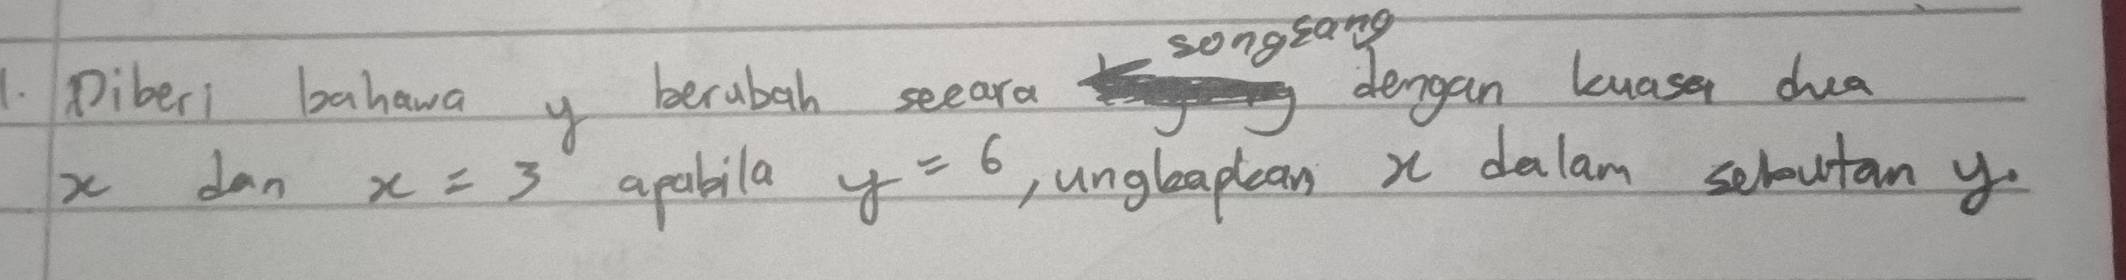 songsang
1. Diberi bahawa y berubah secara dengan kuasa dua
x dan x = 3 apabila y = 6, ungkapkan x dalam sebutan y.